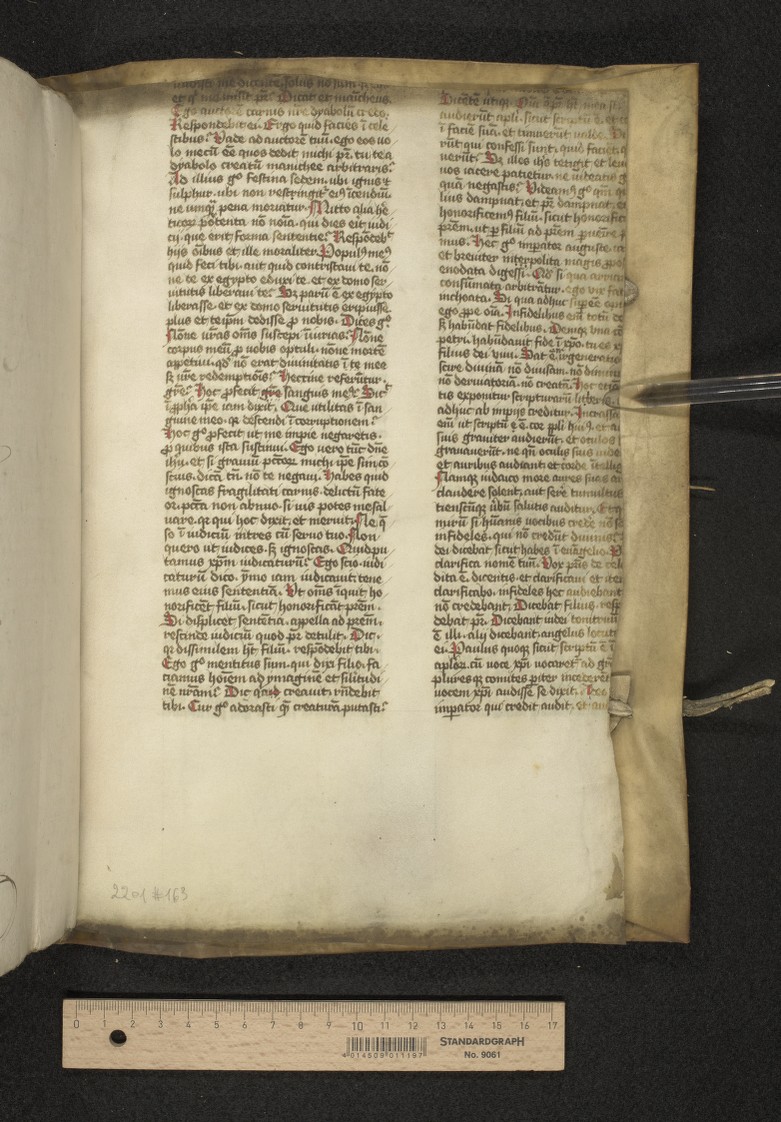 et qͥ me misit pr̄. Dicat et manicheus.
Ego auctorē carnis nr̄e dyabolū credo.
Respondebit ei. Ergo quid facies ī cele
stibus? Vade ad auctorē tuū. ego eos uo
lo mecū eē quos dedit michi pr̄. tu te a
dyabolo creatū manichee arbitraris?
Ad illius gͦ festina sedem. ubi ignis ⁊
sulphur. ubi non restringit᷑ eiꝰ īcendiū.
ne umqͣ pena moriatur. Mitto alia he
ticorꝝ portenta nō noīa. qui dies eit iudi
cii. que erit forma sententie? Respōdebit
hiis oībus et ille moraliter. Populꝰ meꝰ
quid feci tibi. aut quid contristaui te. nō
ne te ex egypto eduxi te. et ex domo ser
uitutis liberaui te? Sꝫ parū ē ex egypto
liberasse. et ex domo seruitutis eripuisse.
plus et teipm̄ dedisse ꝓ nobis. Dices gͦ.
Nōne ur̄as om̄s suscepi īiurias? Nōne
corpus meū ꝓ uobis optuli. nōne mortē
appetiui. qd̓ nō erat diuinitatis ī te mee
sꝫ ur̄e redemptiōis? Heccine referūtur
grē? Hoc ꝓfecit gͣue sanguis meꝰ? Sic̄
ī ꝓpħa ip̄e iam dixit. Que utilitas ī san
guine meo. qͣ descendi ī corruptionem?
Hoc gͦ ꝓfecit ut me impie negaretis.
ꝓ quibus ista sustinui. Ego uero tūc dn̄e
ihū. et si grauiū pctōꝝ michi ip̄e sim cō
scius. dicā tn̄. nō te negaui. Habes quid
ignoscas fragilitati carnis. delictū fate
or. pctā̄ non abnuo. si uis potes me sal
uare. qͣ qui hoc dixit. et meruit. Ne qͥ
so ī iudiciū intres cū seruo tuo. Non
quero ut iudices. sꝫ ignoscas. Quid pu
tamus xp̄m iudicaturū? Ego scio. iudi
caturū dico. ymo iam iudicauit. tene
mus eius sententiā. Vt om̄s īquit ho
norificēt filiū. sicut honorificāt pr̄em.
Si displicet sentētia. appella ad pr̄em.
rescinde iudiciū quod pr̄ detulit. Dic.
qͣ dissimilem hꝫ filiū. respōdebit tibi.
Ego gͦ mentitus sum. qui dixi filio. fa
ciamus hoīem ad ymaginē et silitudi
nē nr̄am? Dic creauit. rn̄debit
tibi. Cur gͦ adorasti qͣ creaturā putasti?
audierūt apl̄i. sicut scriptū ē. et
ī faciē suā. et timuerūt ualde.
rūt qui confessi sunt. quid faciet q
uerūt? Sꝫ illos ihs̄ tetigit et leu
uos iacere patietur. ne uideatis g
quā negastis? Videamꝰ gͦ qm̄ qͥ
lius dampnat. et pr̄ dampnat. et
honorificemꝰ filiū. sicut honorific
pr̄em. ut p filiū ad pr̄em puenire
mus. Hec gͦ impator auguste. st
et breuiter interpolita magis. ꝓpos
enodata digessi. Qd̓ si qua
consūmata arbitrātur. ego uix fat
inchoata. Si qua adhuc suꝑeē
ego ꝓpe oīa. Infidelibus em̄ totū de
sꝫ habūdat fidelibus. Deniqꝫ una
petri. habūdauit fide ī xpo. tu es x
filius dei uiui. Sat ē īgeneratio
scire diuinā. nō diuisam. nō diminu
nō deriuatoriā. nō creatū. Hoc etiā
tis exponitur scripturarū litteris.
adhuc ab impiis creditur. Incrassa
em̄ ut scriptū ē. ē cor ppl̄i huiꝰ. et au
suis grauiter audierūt. et oculos
grauauerūt. ne qn̄ oculis suis uide
et auribus audiant. et corde ītellig
Namqꝫ iudaico more aures suas
claudere solent. aut sere tumultus
tiensciūqꝫ ūbū salutis auditur.
mirū si hūanis uocibus crede nō
infideles. qui nō credūt diuinis?
dei dicebat sicut habes ī euāgelio.
clarifica nomē tuū. Vox pr̄is de cel
dita ē. dicentis. et clarificaui et ite
clarificabo. infideles hec audiebant
nō credebant. Dicebat filius. resp
debat pr̄. Dicebant iudei tonitruū
ē. illi. alii dicebant. angelus locut
ei. Paulus quoqꝫ sicut scriptū ē ī
apl̄oꝝ. cū uoce xp̄i uocaret᷑ ad grā
pluresqꝫ comites piter incederēt
uocem xp̄i audisse se dixit. Hec
impator qui credit audit. et au
2201 #163
0 1 2 3 4 5 6 7 8 9 10 11 12 13 14 15 16 17
STANDARDGRAPH
No. 9061
4 014509 011197